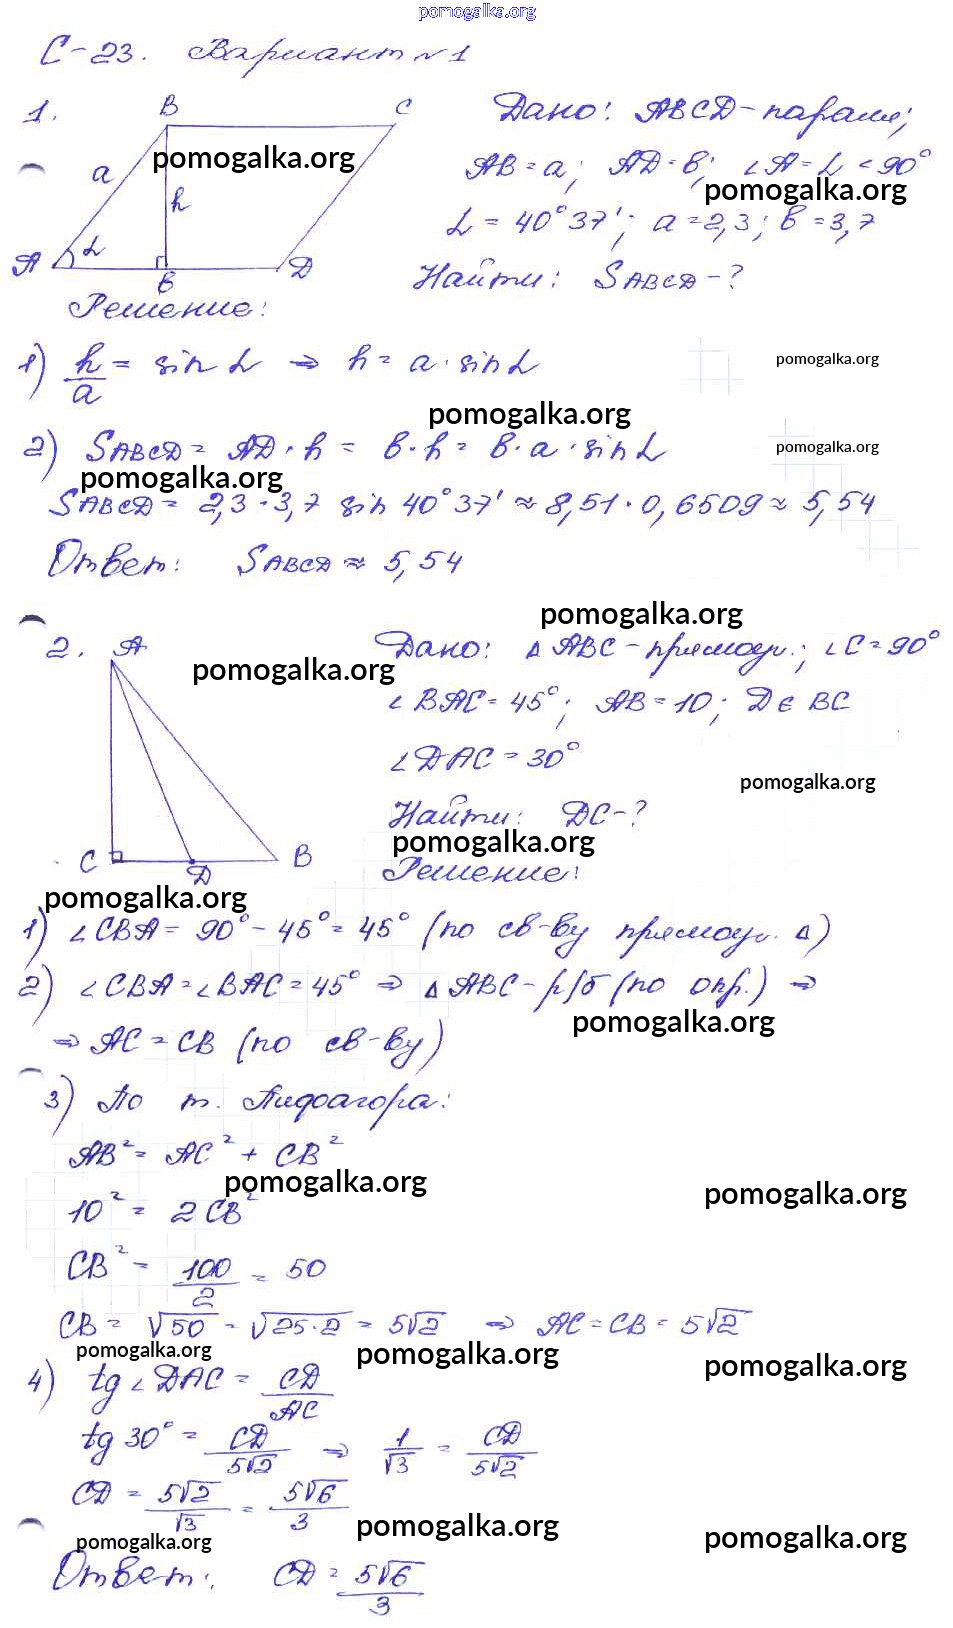 pomogalka.org
С-23. Вариант №1
1. B C Дано: ABCD-паралл;
pomogalka.org
a h AB = a; AD = b; ∠A = α < 90°
pomogalka.org
α = 40°37'; a = 2,3; b = 3,7
A α B D Найти: SABCD - ?
Решение:
1) h/a = sin α ⇒ h = a · sin α
pomogalka.org
pomogalka.org
2) SABCD = AD · h = b · h = b · a · sin α
pomogalka.org
pomogalka.org
SABCD = 2,3 · 3,7 sin 40°37' ≈ 8,51 · 0,6509 ≈ 5,54
Ответ: SABCD ≈ 5,54
pomogalka.org
2. A Дано: △ABC - прямоуг.; ∠C = 90°
pomogalka.org
∠BAC = 45°; AB = 10; D ∈ BC
∠DAC = 30°
pomogalka.org
Найти: DC - ?
pomogalka.org
C D B Решение:
pomogalka.org
1) ∠CBA = 90° - 45° = 45° (по св-ву прямоуг. △)
2) ∠CBA = ∠BAC = 45° ⇒ △ABC - р/б (по опр.) ⇒
pomogalka.org
⇒ AC = CB (по св-ву)
3) По т. Пифагора:
AB² = AC² + CB²
pomogalka.org
pomogalka.org
10² = 2CB²
CB² = 100/2 = 50
CB = √50 = √25·2 = 5√2 ⇒ AC = CB = 5√2
pomogalka.org
pomogalka.org
pomogalka.org
4) tg ∠DAC = CD/AC
tg 30° = CD/5√2 ⇒ 1/√3 = CD/5√2
CD = 5√2/√3 = 5√6/3
pomogalka.org
pomogalka.org
pomogalka.org
Ответ: CD = 5√6/3